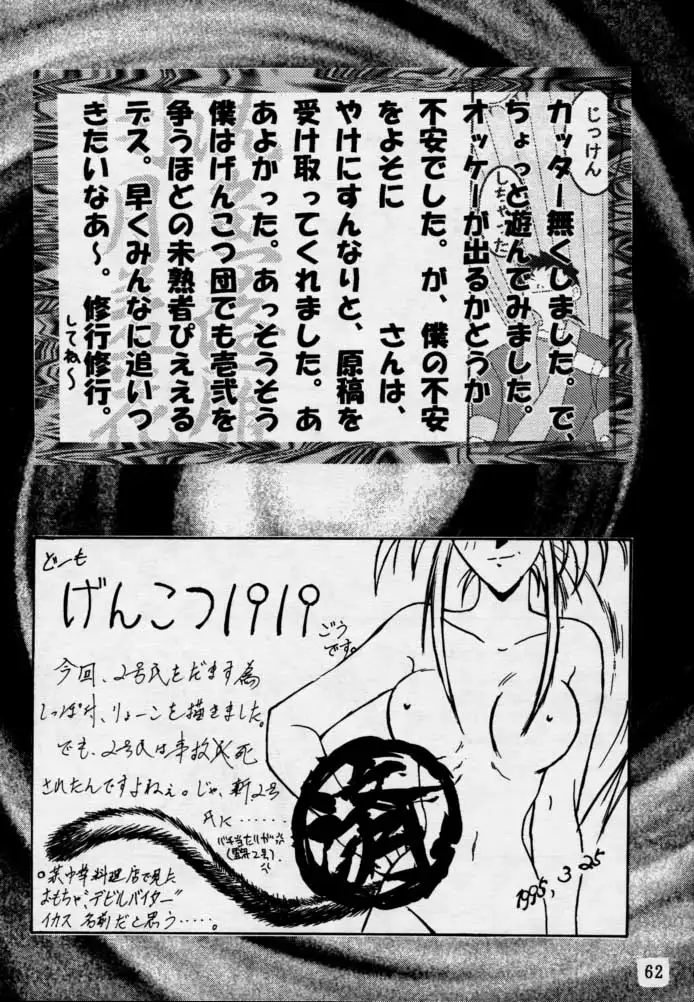 カッター無くしました。で、
ちょっと遊んでみました。
オッケーが出るかとうか
不安でした。が、僕の不安
をよそに　　　さんは、
やけにすんなりと、原稿を
受け取ってくれました。あ
あよかった。あっそうそう
僕はげんこつ団でも壱弐を
争うほどの未熟者ぴええる
デス。早くみんなに追いつ
きたいなあ〜。修行修行。
してね〜
じっけん
しちゃった
どーも
げんこつ1919
ごう
です。
今回、2号氏をだます為
しっぽ付、りょーこを描きました。
でも、2号氏は事故死
されたんですよねぇ。じゃ、新2号
氏に……
バチ当たりがっ
済
。某中華料理店で見た
おもちゃ、"デビルバイター"
イカス名前だと思う……。
1995, 3, 25
62